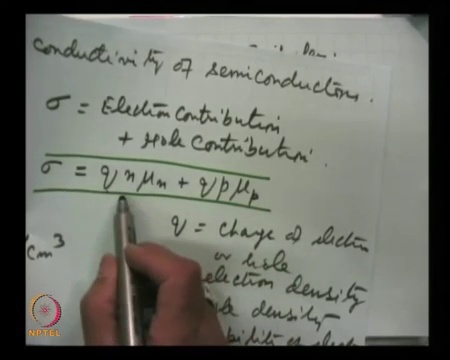 conductivity of semiconductors.
σ = Electron contribution
+ Hole contribution.
σ = q n μn + q p μp
q = charge of electron
or hole
/cm³
electron density
density
NPTEL